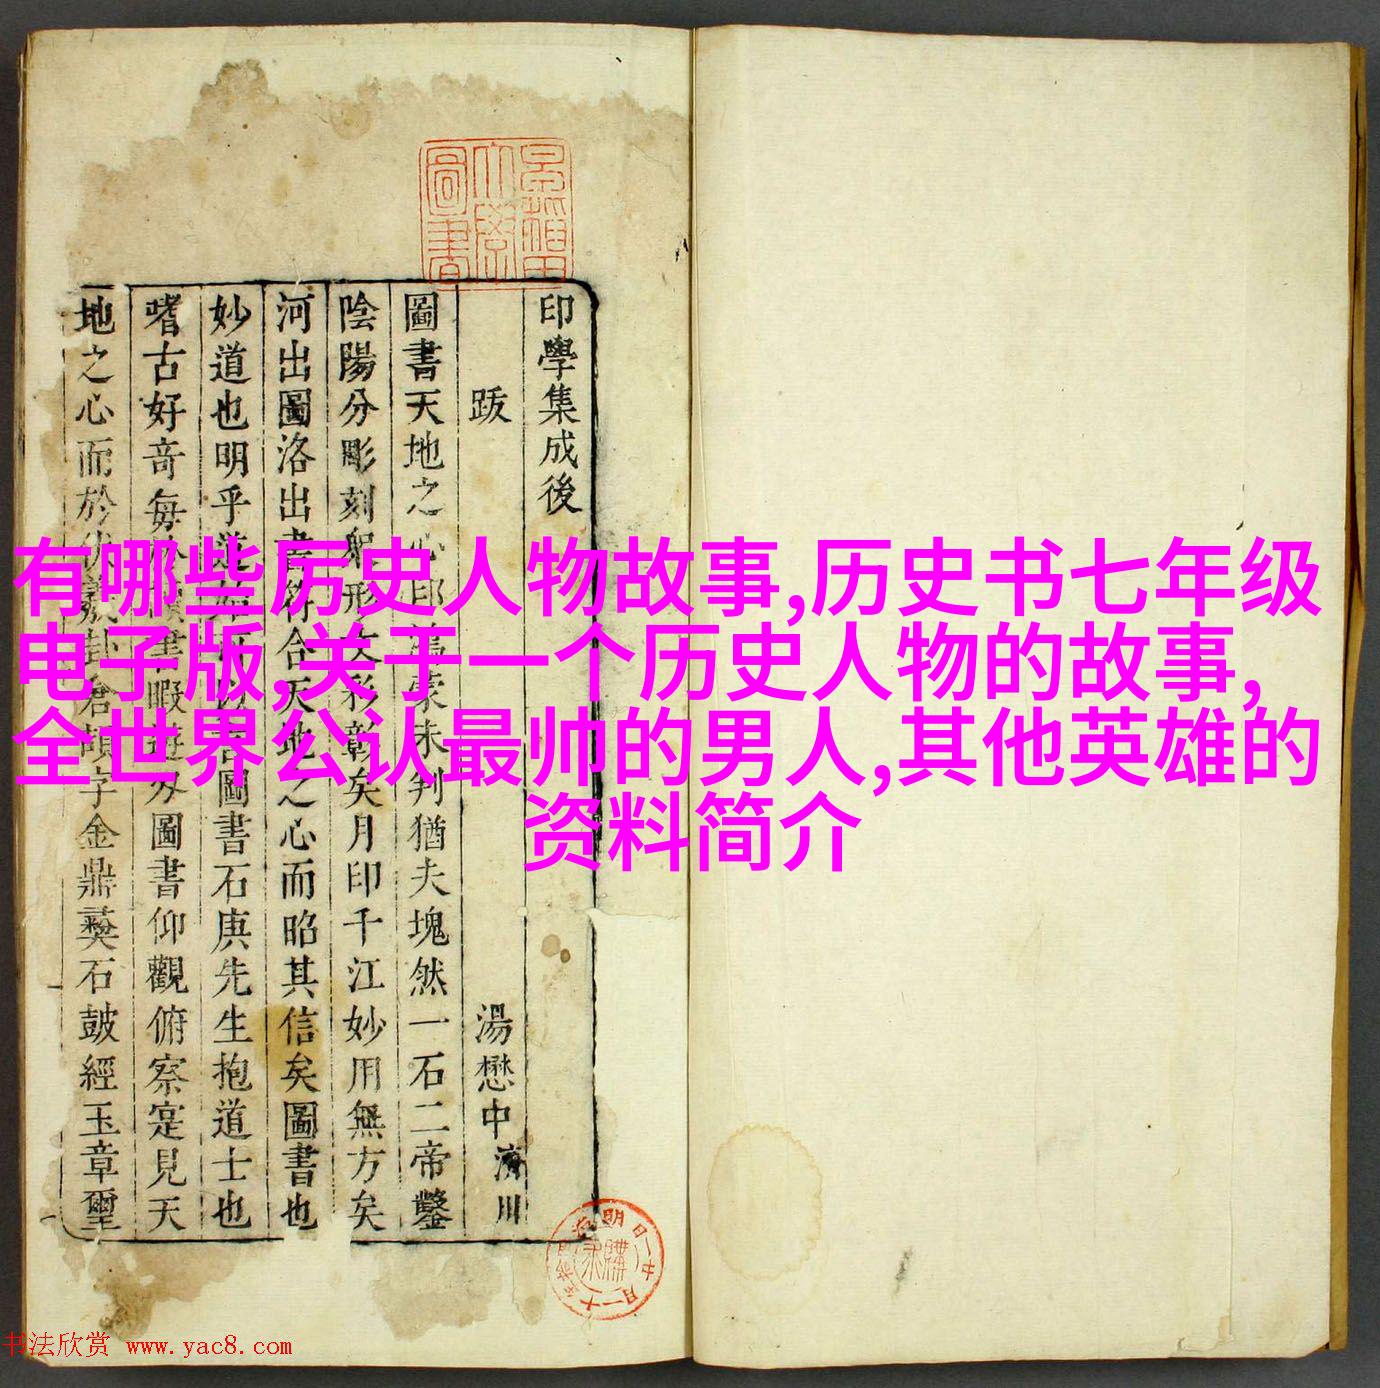 早稻田大學圖書
印學集成後
跋 湯懋中 濟川
圖書天地之心蒙未判猶夫塊然一石二帝鑿
陰陽分彫刻形文彩彰矣月印千江妙用無方矣
河出圖洛出書符合天地之心而昭其信矣圖書也
妙道也明乎道圖書石庚先生抱道士也
嗜古好奇每書暇遊圖書仰觀俯察寔見天
地之心而於伏羲卦倉頡字金鼎彝石鼓經玉章璽
有哪些厉史人物故事,历史书七年级
电子版,关于一个历史人物的故事,
全世界公认最帅的男人,其他英雄的
资料简介
书法欣赏 www.yac8.com